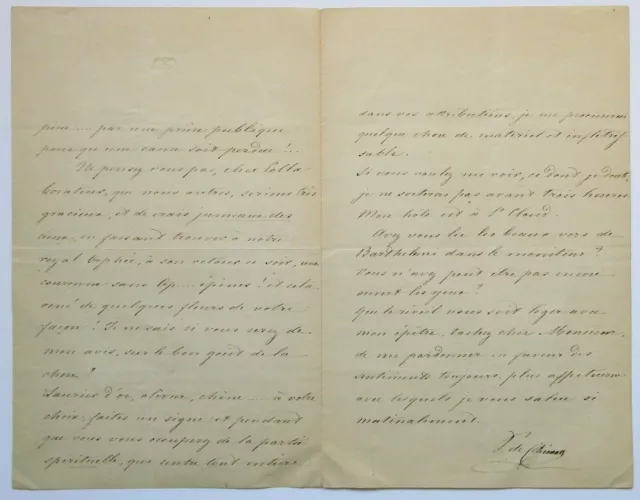 peine .... par une prière publique
pour qu'une sauce soit perdue !..
Ne pensez vous pas, cher Colla-
borateur, que nous autres, serions très
gracieux, et de vrais
en faisant trouver à notre
royal à son retour ce soir, une
couronne sans trop .... épines ! et cela
orné de quelques fleurs de votre
façon ! Je ne sais si vous serez de
mon avis, sur le bon goût de la
chose ?
Lauriers d'or, olivier, chêne .... à votre
choix, faites un signe et pendant
que vous vous occuperez de la partie
spirituelle, que rentre tout entière
dans vos attributions, je me procurerai
quelque chose de matériel et
sable.
Si vous voulez me voir, ce dont je doute,
je ne sortirai pas avant trois heures.
Mon hôte est à St Cloud.
Avez vous lu les beaux vers de
Barthelemi dans le moniteur ?
Vous n'avez peut etre pas encore
ouvert les yeux ?
Que le réveil vous soit léger avec
mon épître, tachez cher Monsieur,
de me pardonner en faveur des
sentiments toujours, plus affectueux
avec lesquels je vous salue si
matinalement.